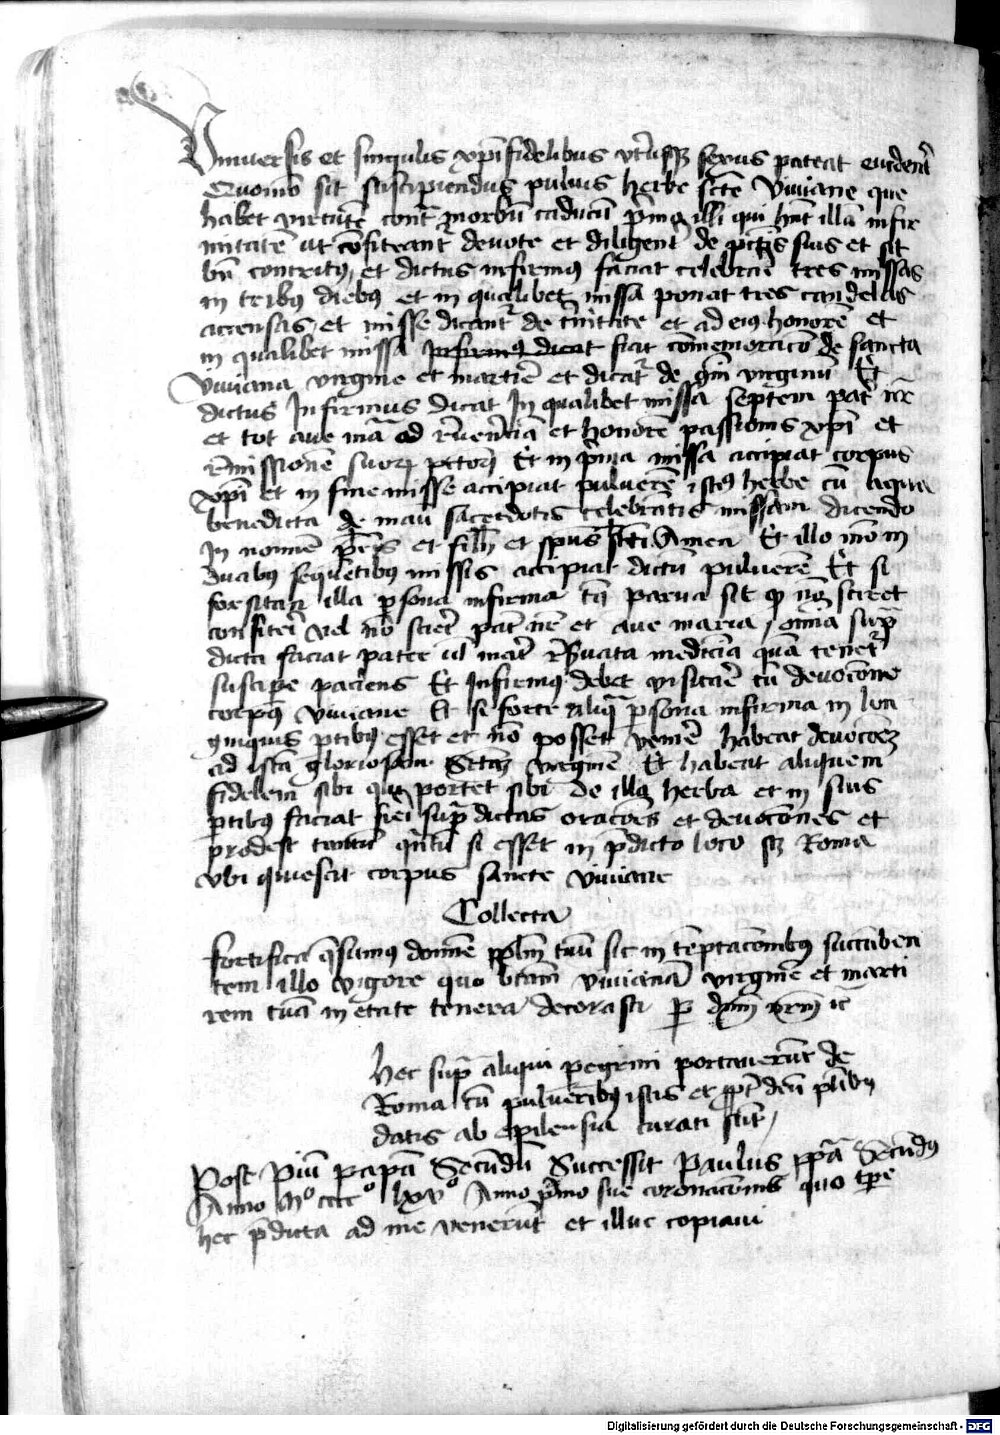 Vniuersis et singulis xp̄ifidelibus vtriusqꝫ sexus pateat euident̄
Quomō sit suscipiendus puluis herbe sctē Viuiane que
habet virtutē contᵃ morbū caducū p̄mo illi qui hn̄t illā infir
mitatē ut cōfiteant deuote et diligent̄ de pctīs suis et sit
bn̄ contritꝰ et dictus infirmꝰ faciat celebrar̄ tres missas
in tribꝰ diebꝰ et in qualibet missa ponat tres candelas
accensas et misse dicantᷣ de t̄nitate et ad eiꝰ honorē et
in qualibet missa infirmꝰ dicat fiat cōmemoracō de sancta
Viuiana virgine et martir̄e et dicatᷣ de
dictus Infirmus dicat In qualibet missa septem patr̄ nr̄
et tot aue mᵃ ad reu̓enciā et honorē passionis xp̄i et
remissionē suorꝝ pctorꝝ Et in p̄ma missa accipiat corpus
xp̄i et in fine misse accipiat puluerē istiꝰ herbe cū aqua
benedicta de manū sacerdotis celebrātis missam dicendo
In nomine pr̄is et filij et spūs scti Amen Et illo mō in
duabꝰ sequētibꝰ missis accipiat dictū puluerē Et si
forsitan illa ꝑsona infirma tā parua sit ꝙ nō sciret
confiteri vel nō sciet̄ patr̄ nr̄ et aue maria / omīa supᵃ
dicta faciat pater vl matr̄ medicīa quā tenetᷣ
suscipe paciens Et Infirmꝰ debet visitar̄e cū deuocōne
corpꝰ Viuiane Et si forte aliqᵃ ꝑsona infirma in lon
ginquis ptibꝰ esset et nō posset venir̄e habeat deuocōeꝫ
ad istā gloriosam Sctāꝫ virginē Et habeat aliquem
fidelem sibi qui portet sibi de illa herba et in suis
ꝑtibꝰ faciat fieri supᵃdictas oracōes et deuocōnes et
prodest tantū qᵃntū si esset in p̄dicto loco sꝫ Roma
vbi quiescit corpus sancte Viuiane
Collecta
fortifica q̄sumꝰ domine pplm̄ tuū sic in temptacōnibꝰ succūben
tem illo vigore quo btām Viuianā virginē et marti
rem tuā in etate tenera decorasti ꝑ dn̄m nrm̄ ic̄
hec supᵃ aliqui pegrini portauerūt de
Roma cū puluēribꝰ istis et
datis ab epilensia curati sūt /
Post Piū papā Secundū Successit Paulus ppᵃ Secundꝰ
Anno Mº ccccº lxvº Anno p̄mo sue coronacōnis quo tp̄e
hec p̄dicta ad me venerūt et illuc copiaui
Digitalisierung gefördert durch die Deutsche Forschungsgemeinschaft - DFG